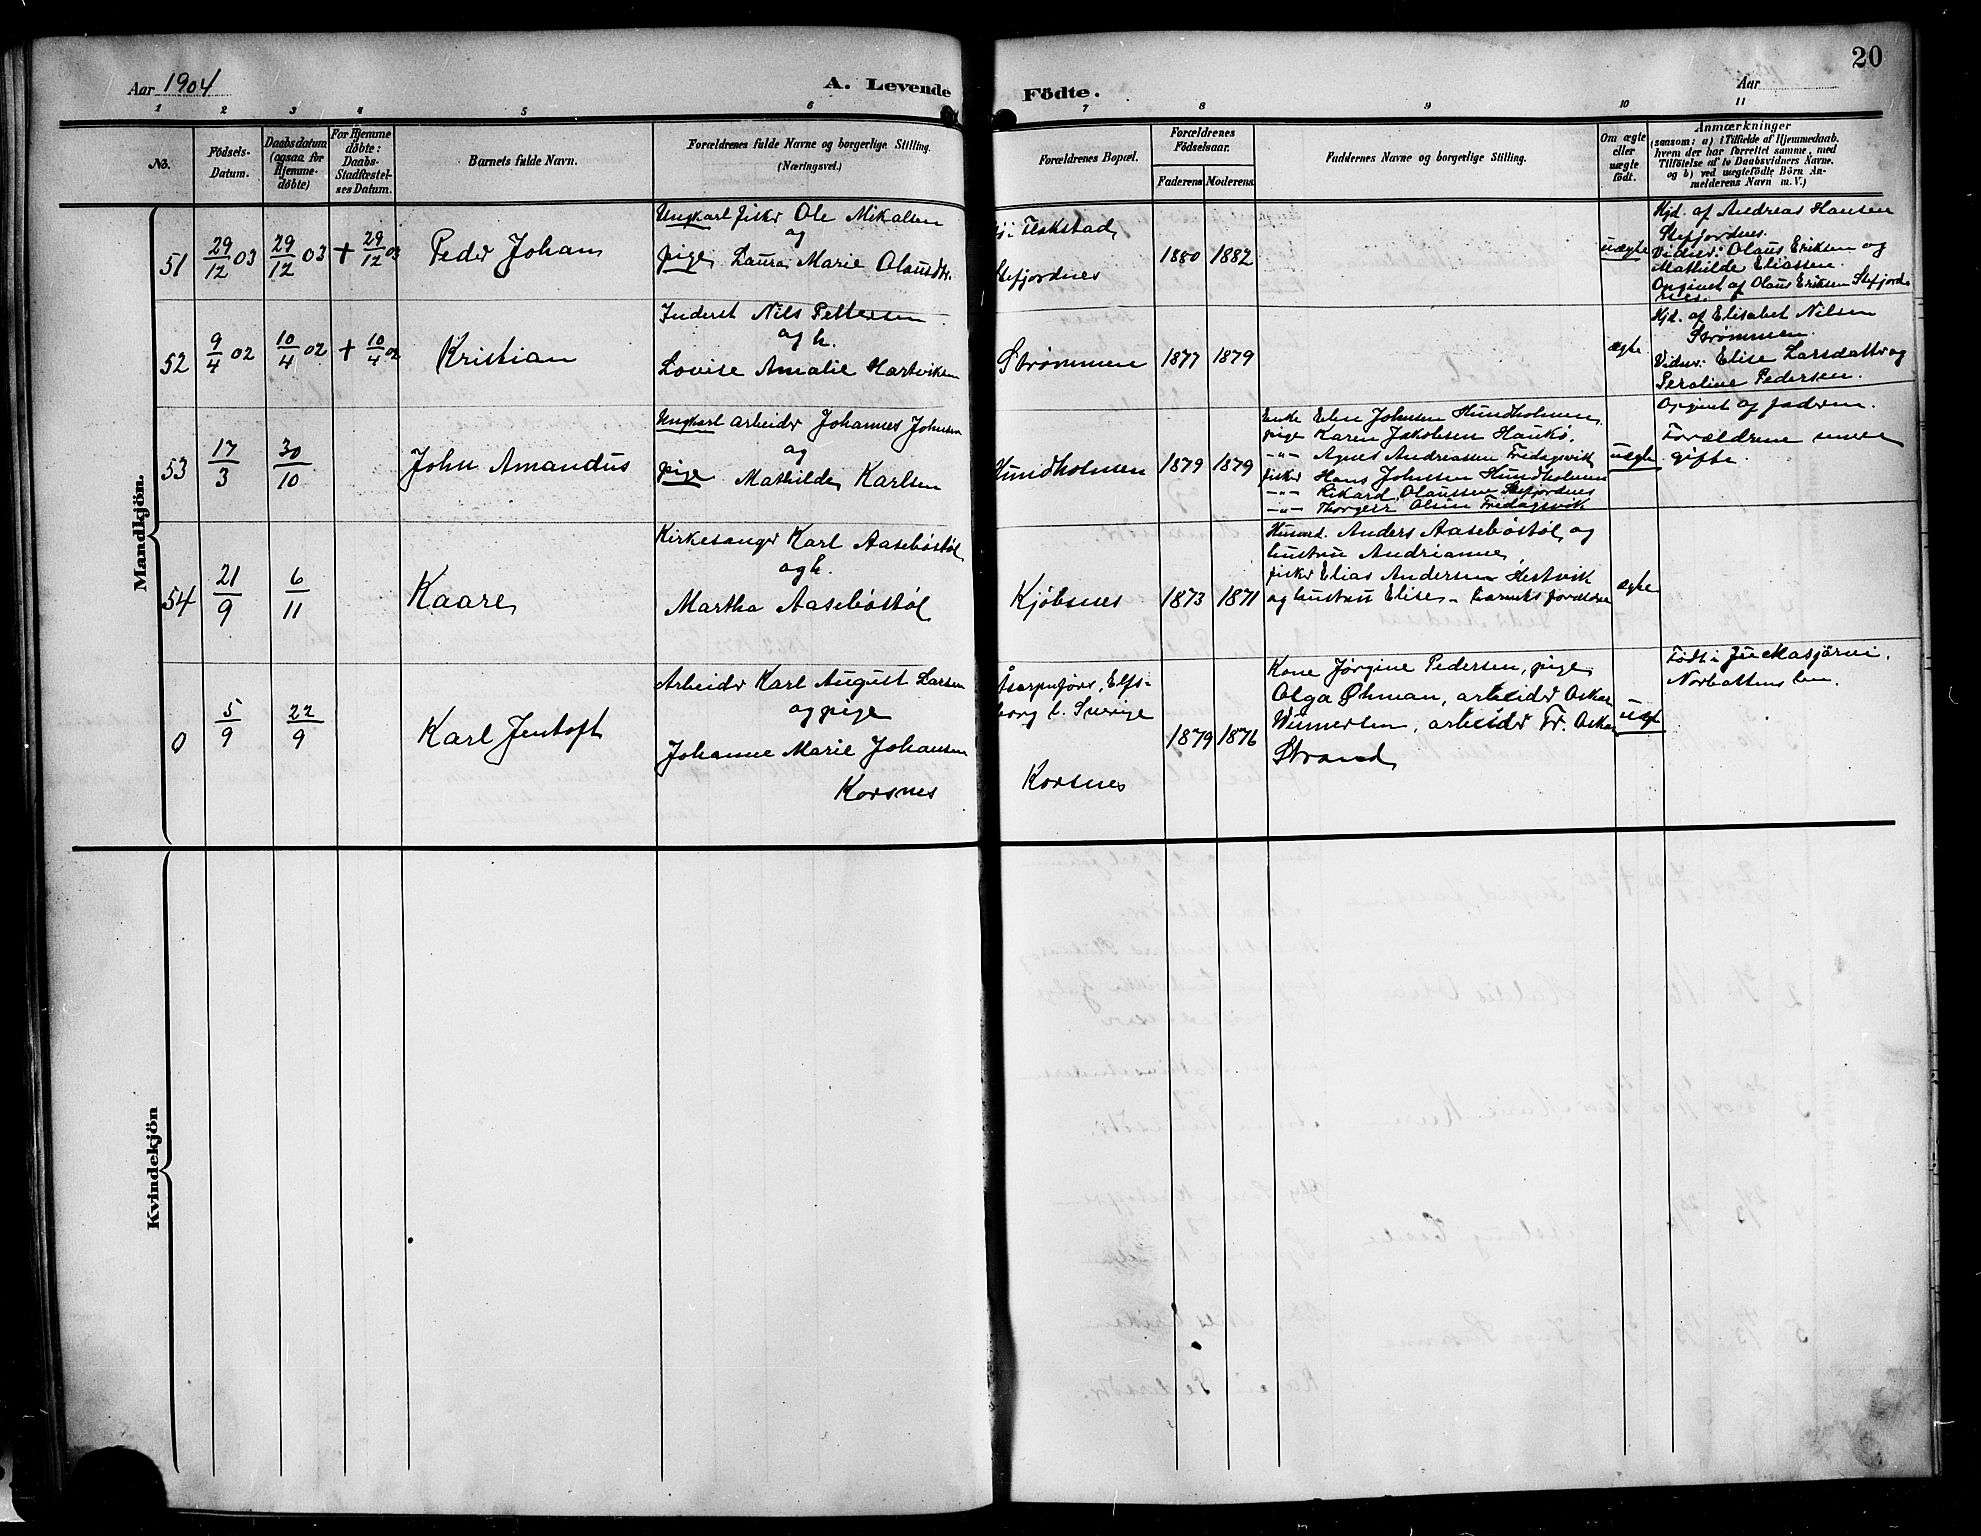 Aar 1904
A. Levende Födte.
Aar
20
1 2 3 4 5 6 7 8 9 10 11
No.
Födsels-
Datum.
Daabsdatum
(ogsaa for
Hjemme-
døbte)
For Hjemme
døbte:
Daabs-
Stadfæstel-
ses Datum.
Barnets fulde Navn.
Forældrenes fulde Navne og borgerlige Stilling.
(Næringsvei.)
Forældrenes Bopæl.
Forældrenes
Födselsaar.
Faderens
Moderens
Faddernes Navne og borgerlige Stilling.
Om ægte
eller
uægte
født.
Anmærkninger
(saasom: a) i Tilfælde af Hjemmedaab.
hvem der har forrettet samme, med
Tilföielse af to Daabsvidners Navne.
og b) ved uægtefödte Börn An-
melderens Navn m. V.)
Mandkjön.
51
29/12 03
29/12 03
+ 29/12 03
Peder Johan
Ungkarl fisker Ole Mikalsen
og
pige Laura Marie Olausdtr.
Flakstad,
Stefjordnes
1880
1882
uægte
Hjd. af Andreas Hansen
Stefjordnes.
Vidner: Olaus Eriksen og
Mathilde Eliassen.
Opgivet af Olaus Eriksen Stefjord-
nes.
52
9/4 02
10/4 02
+ 10/4 02
Kristian
Inderst Nils Pettersen
og h.
Lovise Amalie Hartviksen
Strømmen
1877
1879
ægte
Hjd. af Elisabet Nilsen
Strømmen.
Vidner: Elise Larsdatter og
Peroline Pedersen.
53
17/3
30/10
John Amandus
Ungkarl arbeider Johannes Johnsen
og
pige Mathilde Karlsen
Hundholmen
1879
1879
Enke Elen Johnsen Hundholmen,
pige Karen Jakobsen Haukø,
-"- Agnes Andreassen Fredagsvik
fisker Hans Johnsen Hundholmen
-"- Rikard Olaussen Stefjordnes
-"- Thorgerr Olsen Fredagsvik
uægte
Opgivet af faderen.
Forældrene senere
gifte.
54
21/9
6/11
Kaare
Kirkesanger Karl Aasebøstøl
og h.
Martha Aasebøstøl
Kjøbsnes
1873
1871
Husmd. Anders Aasebøstøl og
hustru Andrianne,
fisker Elias Andersen Hestvik
og hustru Elise - Barnets forældre
ægte
0
5/9
22/9
Karl Jentoft
Arbeider Karl August Larsen
og pige
Johanne Marie Johansen
Korsnes
Elfs-
borg l. Sverige
Korsnes
1879
1876
Kone Jørgine Pedersen, pige
Olga Öhman, arbeider Oskar
Wennersten, arbeider Fr. Oskar
Strand
uægt
Født i Juckasjärvi,
Norbottens len.
Kvindekjön